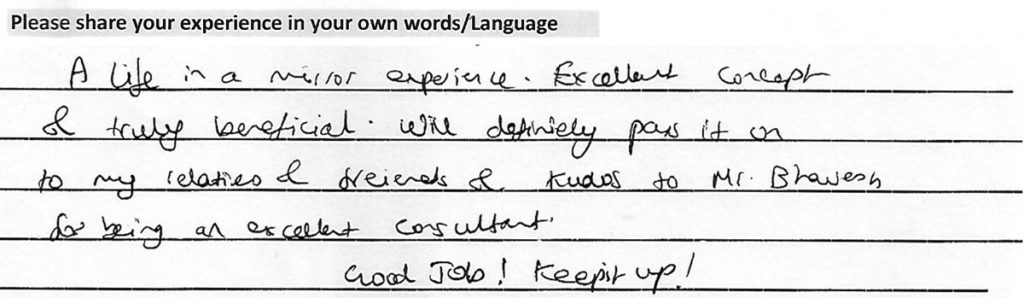 Please share your experience in your own words/Language
A Life in a mirror experience. Excellent Concept
& truly beneficial. Will definiely pass it on
to my relaties & freiends & kudos to Mr. Bhavesh
for being an excellent consultant.
Good Job! Keep it up!